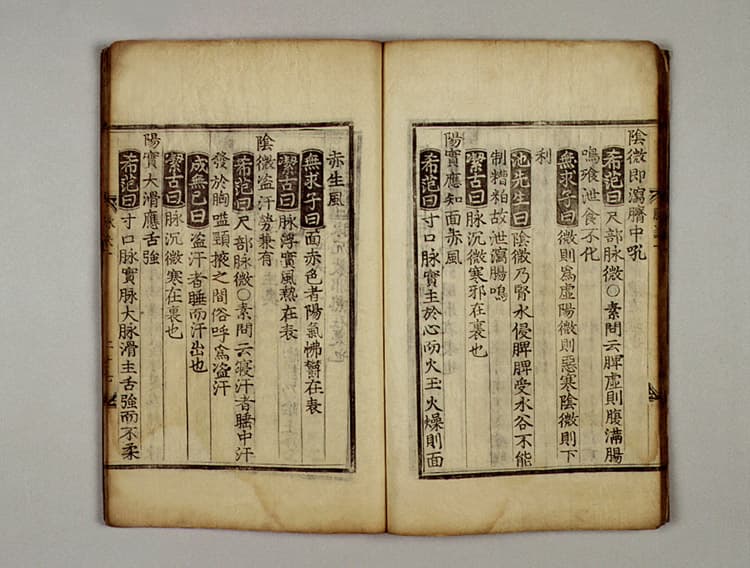 陰微即瀉臍中吼
希范曰尺部脉微○素問云脾虛則腹滿腸
鳴飱泄食不化
無求子曰微則爲虛陽微則惡寒陰微則下
利
池先生曰陰微乃腎水侵脾脾受水谷不能
制糟粕故泄瀉腸鳴
潔古曰脉沉微寒邪在裏也
陽實應知面赤風
希范曰寸口脉實主於心而火王火燥則面
赤生風
無求子曰面赤色者陽氣怫鬱在表
潔古曰脉浮實風熱在表
陰微盗汗勞兼有
希范曰尺部脉微○素問云寢汗者睡中汗
發於胸嗌頸掖之間俗呼爲盗汗
成無己曰盗汗者睡而汗出也
潔古曰脉沉微寒在裏也
陽實大滑應舌強
希范曰寸口脉實脉大脉滑主舌強而不柔